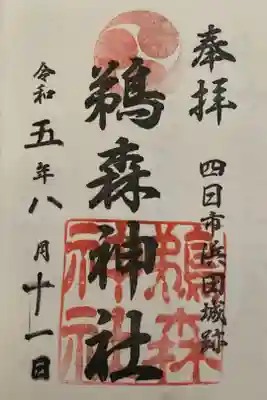 奉拝
四日市浜田城跡
鵜森神社
鵜森神社
令和五年八月十一日